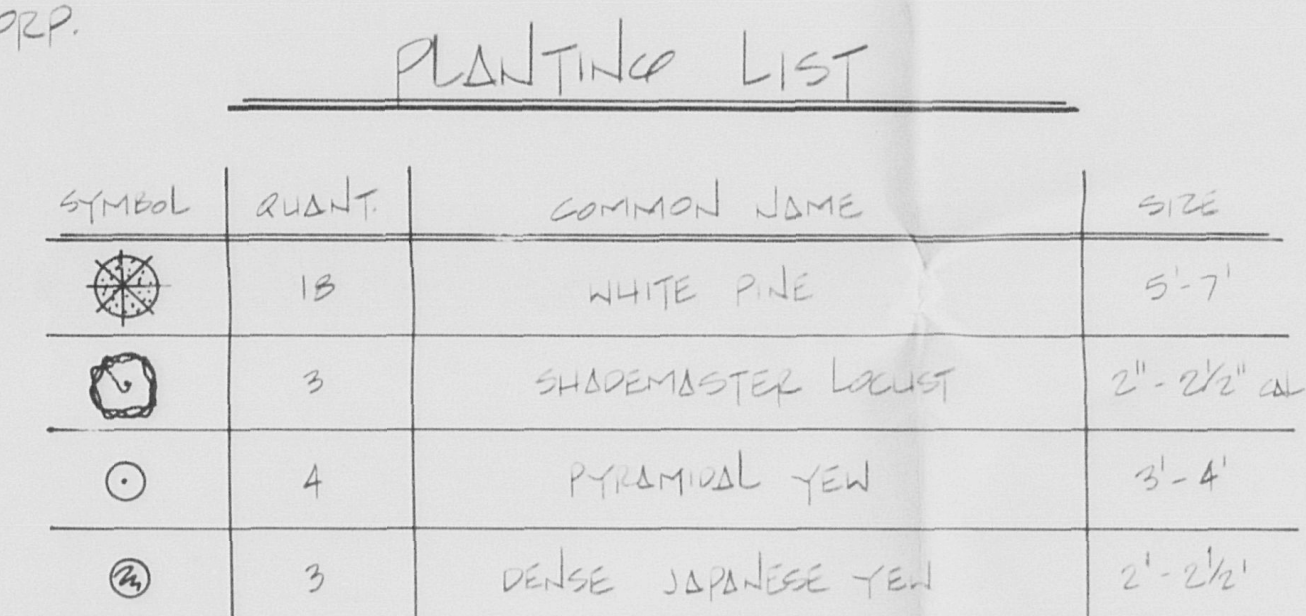 ORP.
PLANTING LIST
SYMBOL QUANT. COMMON NAME SIZE
18 WHITE PINE 5'-7'
3 SHADEMASTER LOCUST 2"-2½" CAL
4 PYRAMIDAL YEW 3'-4'
3 DENSE JAPANESE YEW 2'-2½'